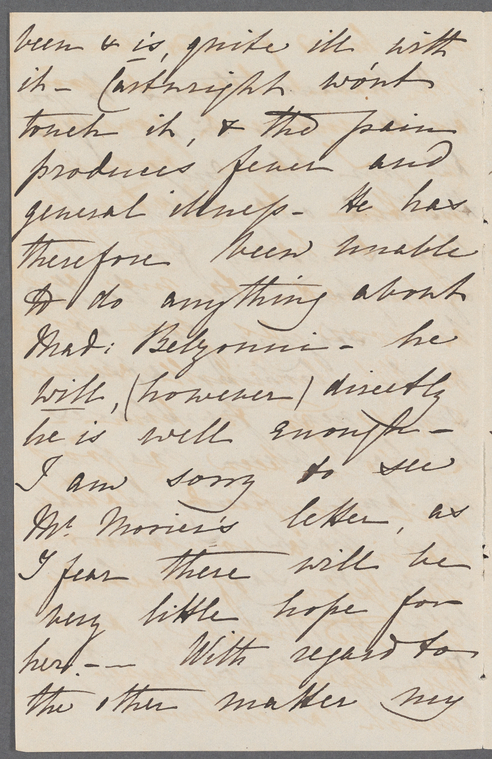 been & is, quite ill with
it - Cartwright wo'nt
touch it, & the pain
produces fever and
general illness - He has
therefore been unable
to do anything about
Mad: Belzonni - he
will, (however) directly
he is well enough -
I am sorry to see
Mr. Morier's letter, as
I fear there will be
very little hope for
her. - - With regard to
the other matter my